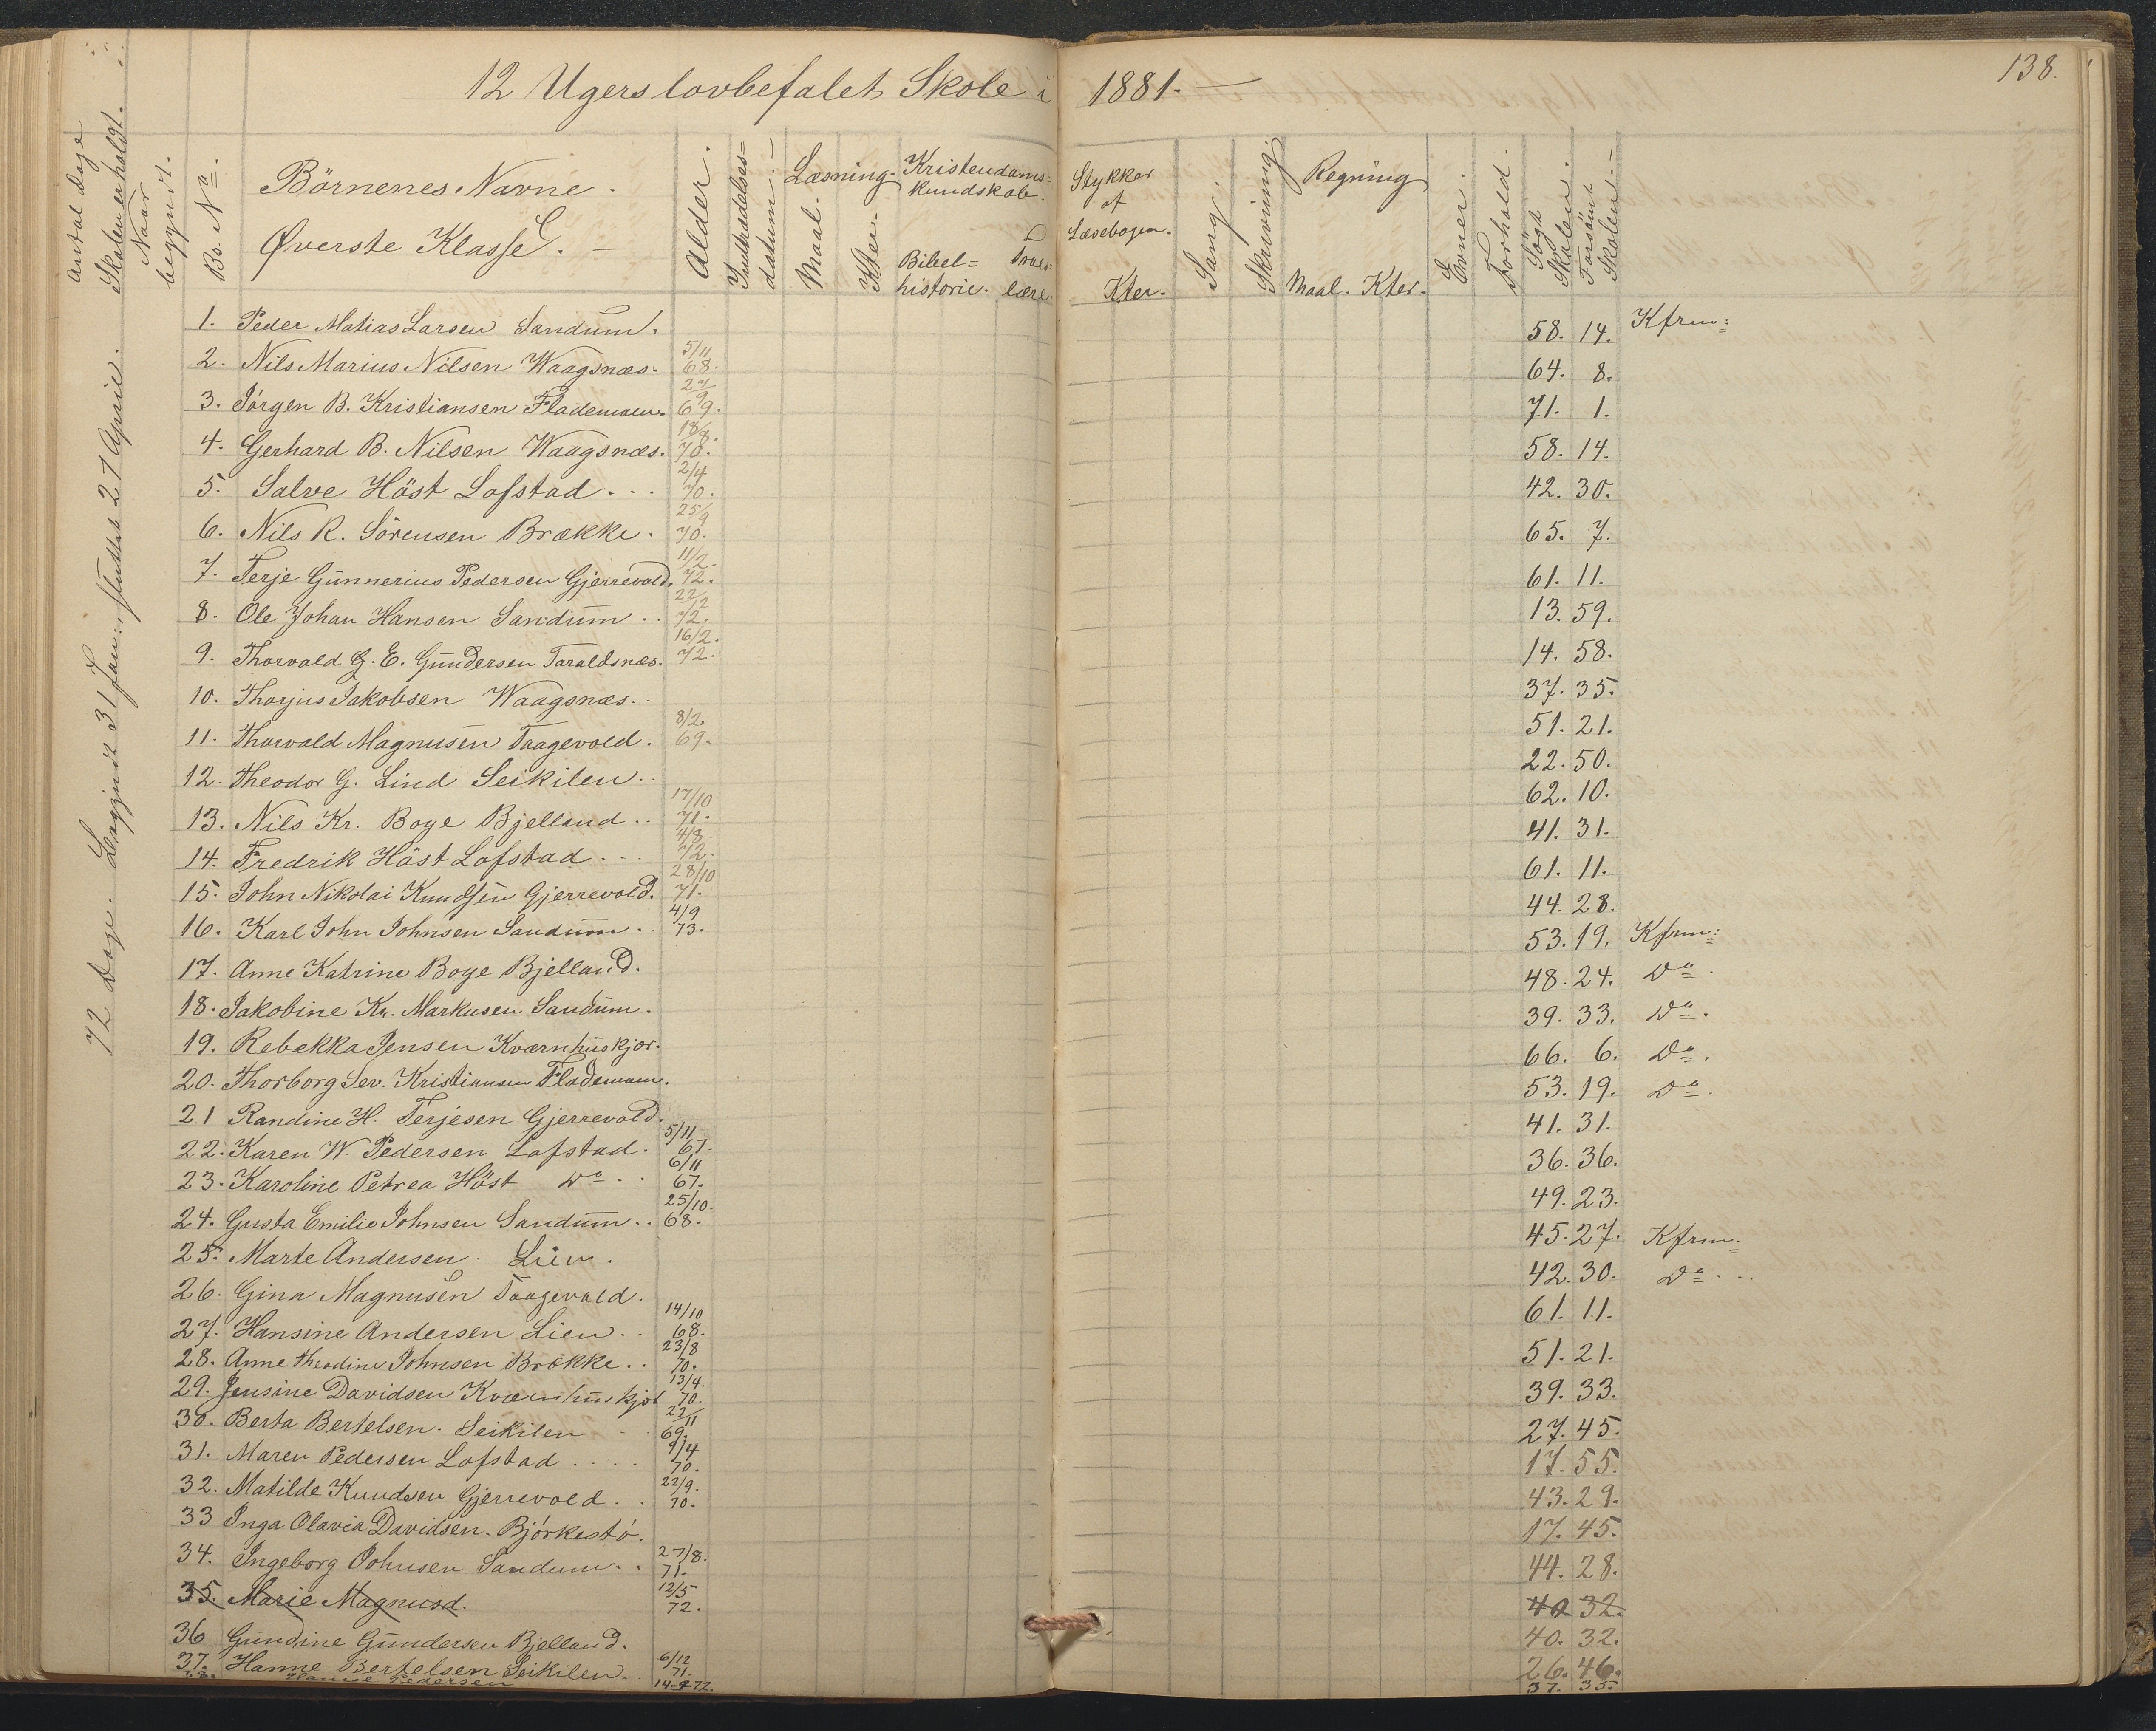 138.
12 Ugers lovbefalet Skole i 1881.
Antal dage Skolen er holdt. Naar begynt.
Bs. No. Börnenes Navne. Øverste Klasse. Alder. Indtrædelses= datum. Læsning. Maal. Kter. Kristendoms= kundskab. Bibel= historie. Troes= lære. Stykker af Læsebogen. Kter. Sang. Skrivning. Regning Maal. Kter. Evner. Forhold. Sögt Skolen. Forsömt Skolen.
72 Dage. Begyndt 31 Jan: sluttet 27 April.
1. Peder Matias Larsen Sandum. 58. 14. Kfrm:
2. Nils Marius Nilsen Waagsnæs. 5/11 68. 64. 8.
3. Jörgen B. Kristiansen Flademoen. 27/9 69. 71. 1.
4. Gerhard B. Nilsen Waagsnæs. 18/8. 70. 58. 14.
5. Salve Höst Lofstad. 2/4 70. 42. 30.
6. Nils R. Sörensen Brække. 25/9 70. 65. 7.
7. Terje Gunnerius Pedersen Gjerrevold. 11/2. 72. 61. 11.
8. Ole Johan Hansen Sandum. 22/12 72. 13. 59.
9. Thorvald G. E. Gundersen Taraldsnæs. 16/2. 72. 14. 58.
10. Thorjus Jakobsen Waagsnæs. 37. 35.
11. Thorvald Magnusen Taagevold. 8/2. 69. 51. 21.
12. Theodor G. Lind Seikilen. 22. 50.
13. Nils Kr. Boye Bjelland. 17/10 71. 62. 10.
14. Fredrik Höst Lofstad. 4/8. 72. 41. 31.
15. John Nikolai Knudsen Gjerrevold. 28/10 71. 61. 11.
16. Karl John Johnsen Sandum. 4/9 73. 44. 28.
17. Anne Katrine Boye Bjelland. 53. 19. Kfrm:
18. Jakobine Kr. Markusen Sandum. 48. 24. Do.
19. Rebekka Jensen Kværnhuskjor. 39. 33. Do.
20. Thorborg Sev. Kristiansen Flademoen. 66. 6. Do.
21 Randine H. Terjesen Gjerrevold. 53. 19. Do.
22. Karen W. Pedersen Lofstad. 5/11 67. 41. 31.
23. Karoline Petrea Höst Do. 6/11 67. 36. 36.
24. Gusta Emilie Johnsen Sandum. 25/10. 68. 49. 23.
25. Marte Andersen. Lien. 45. 27. Kfrm:
26. Gina Magnusen Taagevold. 42. 30. Do.
27. Hansine Andersen Lien. 14/10 68. 61. 11.
28. Anne Theodine Johnsen Brække. 23/8 70. 51. 21.
29. Jensine Davidsen Kværnhuskjor 13/4. 70. 39. 33.
30. Berta Bertelsen. Seikilen. 22/11 69. 27. 45.
31. Maren Pedersen Lofstad. 9/4 70. 17. 55.
32. Matilde Knudsen Gjerrevold. 22/9. 70. 43. 29.
33 Inga Olavia Davidsen. Björkestö. 17. 45.
34. Ingeborg Johnsen Sandum. 27/8. 71. 44. 28.
35. Marie Magnusd. 12/5 72. 40 32.
36 Gundine Gundersen Bjelland. 40. 32.
37. Hanne Bertelsen Seikilen. 6/12 71. 26. 46.
38. Hanne Pedersen 14-9 72. 37. 35.